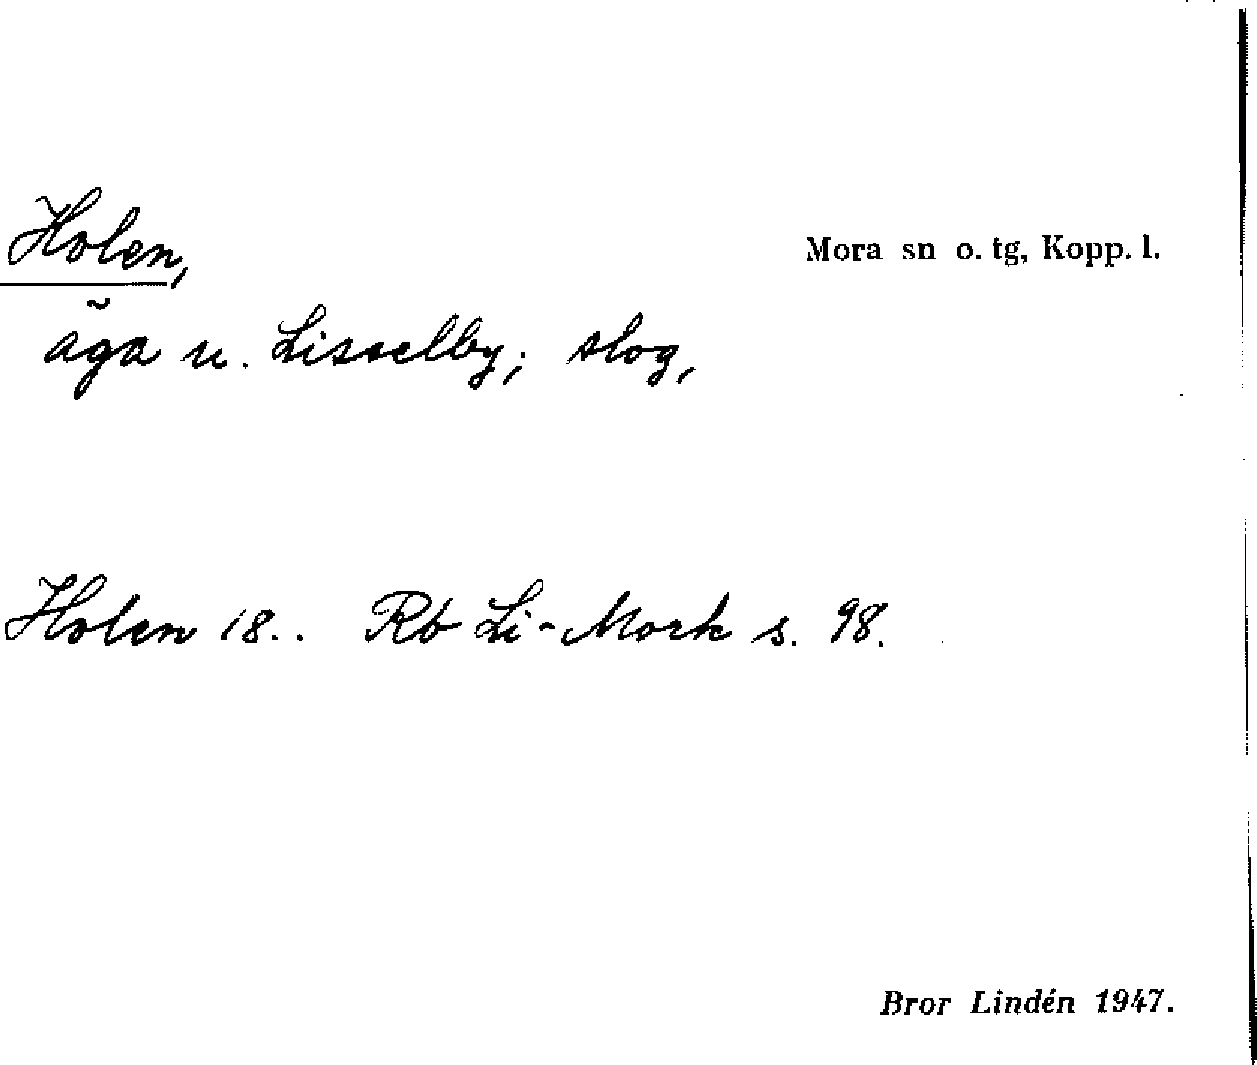 Holen,
Mora sn o. tg, Kopp. l.
äga u. Lisselby; slog,
Holen 18.. Rb Li-Mork s. 98.
Bror Lindén 1947.